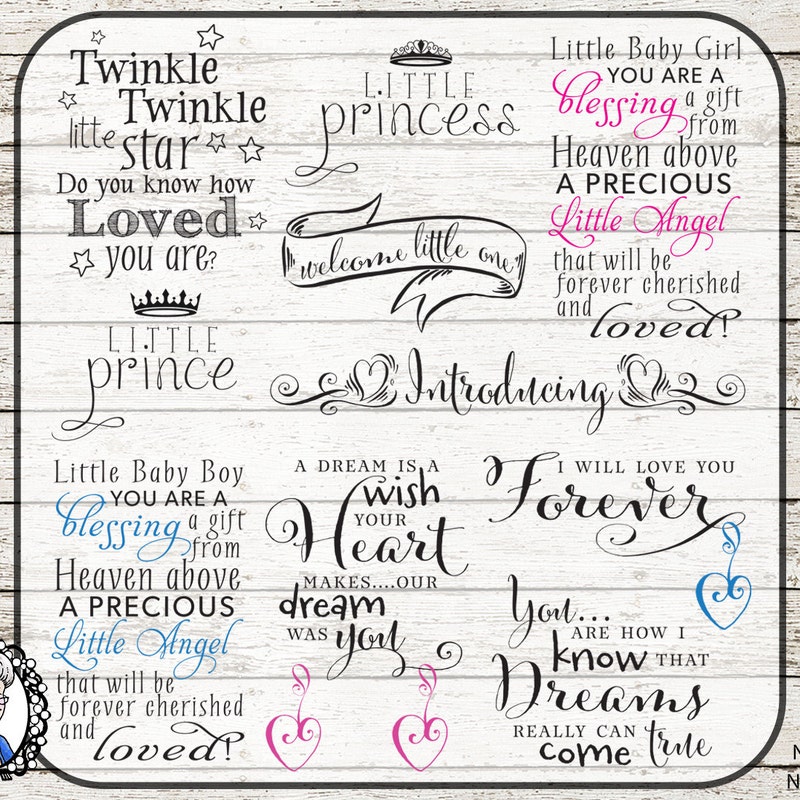 Twinkle
Twinkle
little
star
Do you know how
Loved
you are?
LITTLE
princess
Little Baby Girl
YOU ARE A
blessing a gift
from
Heaven above
A PRECIOUS
Little Angel
that will be
forever cherished
and
loved!
welcome little one
LITTLE
prince
Introducing
Little Baby Boy
YOU ARE A
blessing a gift
from
Heaven above
A PRECIOUS
Little Angel
that will be
forever cherished
and
loved!
A DREAM IS A
wish
YOUR
Heart
MAKES....OUR
dream
WAS you
I WILL LOVE YOU
Forever
You...
ARE HOW I
know THAT
Dreams
REALLY CAN
come true
N
N